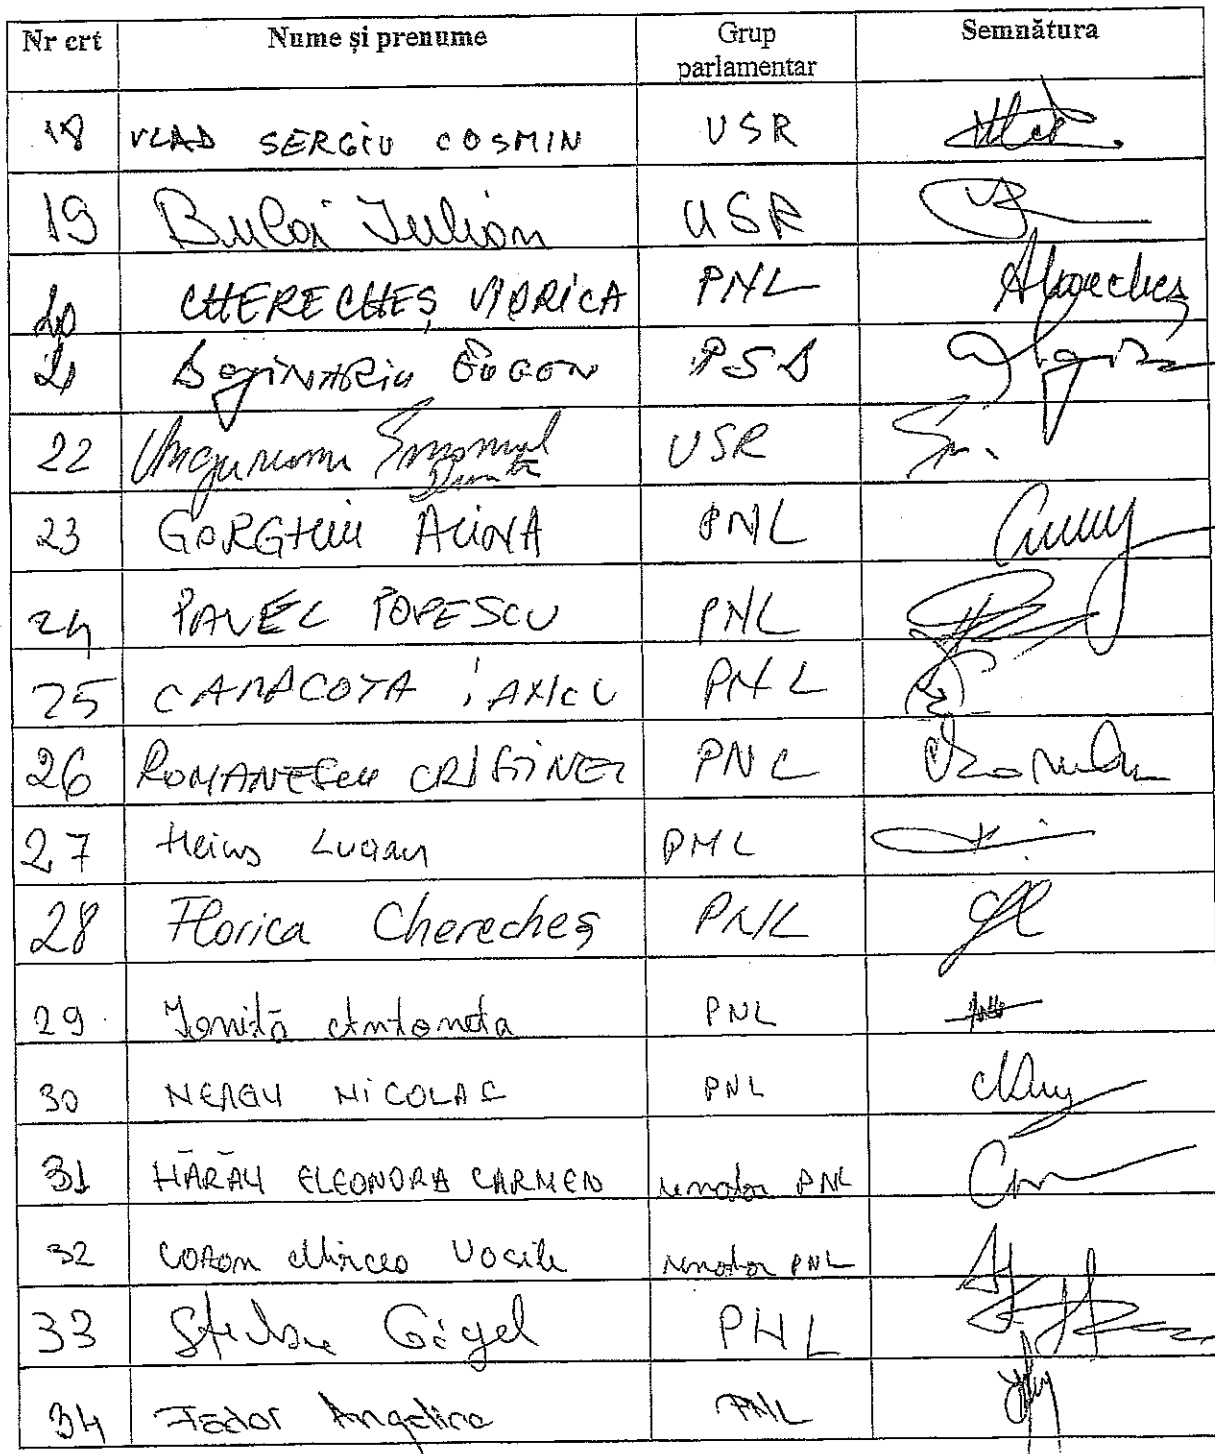 Nr crt Nume și prenume Grup parlamentar Semnătura
18 VLAD SERGIU COSMIN USR
19 Bulai Iulian USR
20 CHERECHEȘ VIORICA PNL
21 PSD
22 Ungureanu Emanuel USR
23 GORGHIU ALINA PNL
24 PAVEL POPESCU PNL
25 PNL
26 ROMANESCU CRISTINEL PNL
27 Heius Lucian PNL
28 Florica Cherecheș PNL
29 Ioniță Antoneta PNL
30 NEAGU NICOLAE PNL
31 HĂRĂU ELEONORA CARMEN senator PNL
32 Mircea Vasile senator PNL
33 Știrbu Gigel PNL
34 Fădor Angelica PNL